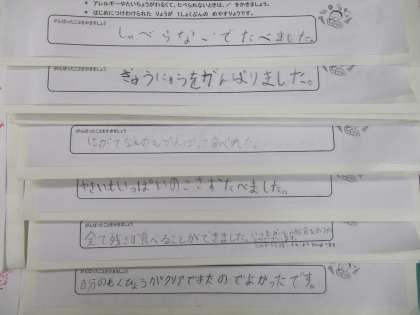 ＊ アレルギーやたいちょうがわるくて、たべられないときは、／ をかきましょう。
＊ はじめにつけわけられた りょうが 1しょくぶんの めやすりょうです。
がんばったことをかきましょう
しゃべらないでたべました。
がんばったことをかきましょう
ぎゅうにゅうをがんばりました。
がんばったことをかきましょう
にがてなものもがんばって食べれた。
やさいもいっぱいのこさずたべました。
がんばったことをかきましょう
全て残さず食べることができました。
がんばったことをかきましょう
自分のもくひょうがクリアできたのでよかったです。